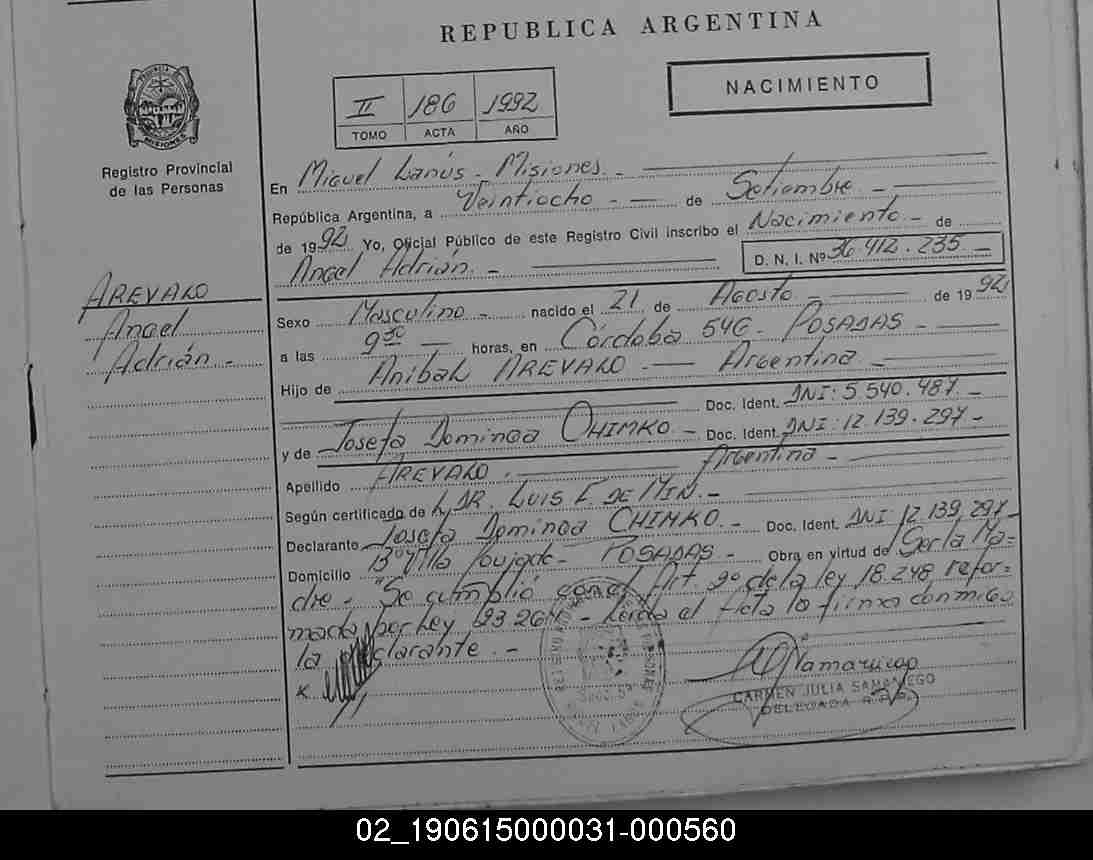 REPUBLICA ARGENTINA
PROVINCIA DE
MISIONES
Registro Provincial
de las Personas
II 186 1992
TOMO ACTA AÑO
NACIMIENTO
En Miguel Lanús - Misiones. -
República Argentina, a Veintiocho - — de Setiembre. -
de 1992 Yo, Oficial Público de este Registro Civil inscribo el Nacimiento - de
Angel Adrián. - D. N. I. Nº 36.412.235. -
AREVALO
Angel
Adrián. -
Sexo Masculino - nacido el 21 de Agosto de 1992
a las 9 30 — horas, en Córdoba 546 - POSADAS -
Hijo de Anibal AREVALO - — Argentina -
Doc. Ident. DNI: 5.540.487. -
y de Josefa Dominga CHIMKO. - Doc. Ident. DNI: 12.139.297 -
Apellido AREVALO. Argentina -
Según certificado de DR. LUIS F. DE MIN. -
Declarante Josefa Dominga CHIMKO. - Doc. Ident. DNI: 12.139.297 -
Domicilio Bº Villa Poujade - POSADAS - Obra en virtud de Ser la Ma=
dre. - "Se cumplió con el Art. 2º de la ley 18.248, refor=
mada por Ley 23.264 - Leída el Acta la firma conmigo
la declarante. -
x
CARMEN JULIA SAMANIEGO
DELEGADA R.P.P.
02_190615000031-000560